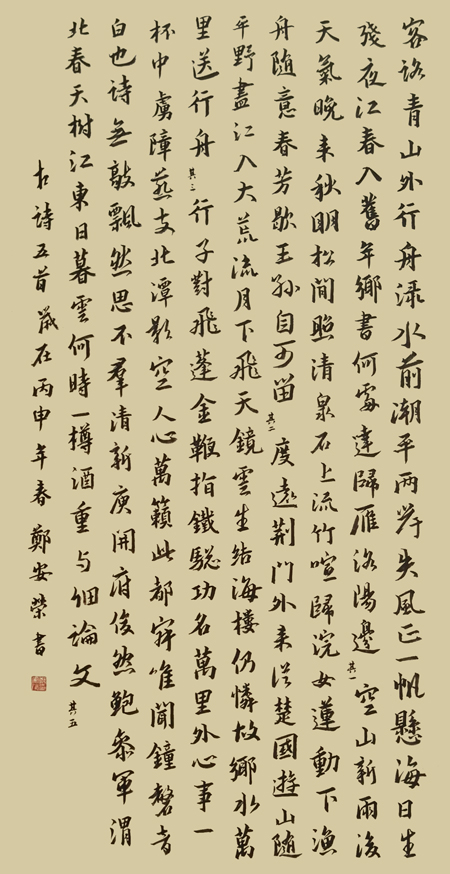 客路青山外行舟渌水前潮平兩岸失風正一帆懸海日生
殘夜江春入舊年鄉書何處達歸雁洛陽邊其一空山新雨後
天氣晚来秋明松間照清泉石上流竹喧歸浣女蓮動下漁
舟隨意春芳歇王孫自可留其二度遠荆門外来從楚國遊山隨
平野盡江入大荒流月下飛天鏡雲生結海樓仍憐故鄉水萬
里送行舟其三行子對飛蓬金鞭指鐵驄功名萬里外心事一
杯中虜障燕支北潭影空人心萬籟此都寂唯聞鐘磬音
白也詩無敵飄然思不羣清新庾開府俊然鮑參軍渭
北春天樹江東日暮雲何時一樽酒重与細論文其五
古詩五首歲在丙申年春鄭安榮書